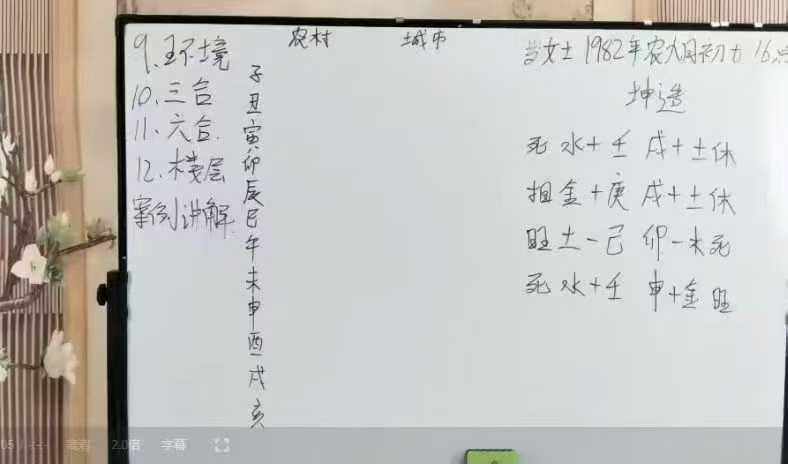 农村 城市
女士 1982年农九月初七 16点
坤造
9、环境
10、三合
11、六合.
12、楼层
案例讲解
子
丑
寅
卯
辰
巳
午
未
申
酉
戌
亥
死 水+壬 戌+土休
相 金+庚 戌+土休
旺 土-己 卯-木死
死 水+壬 申+金 旺
05 2.0倍 字幕